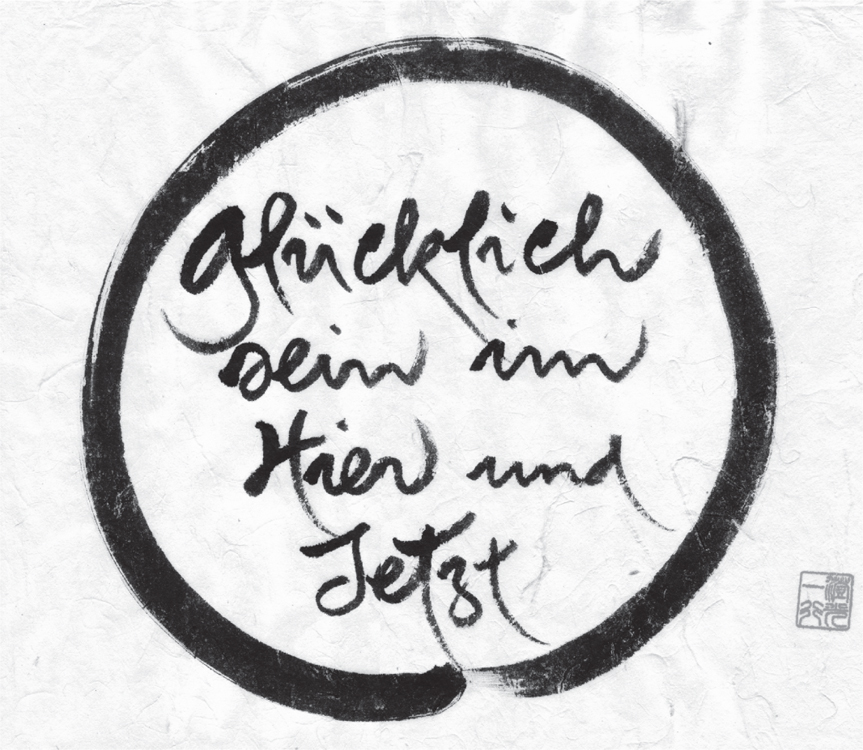 glücklich
sein im
Hier und
Jetzt
一行